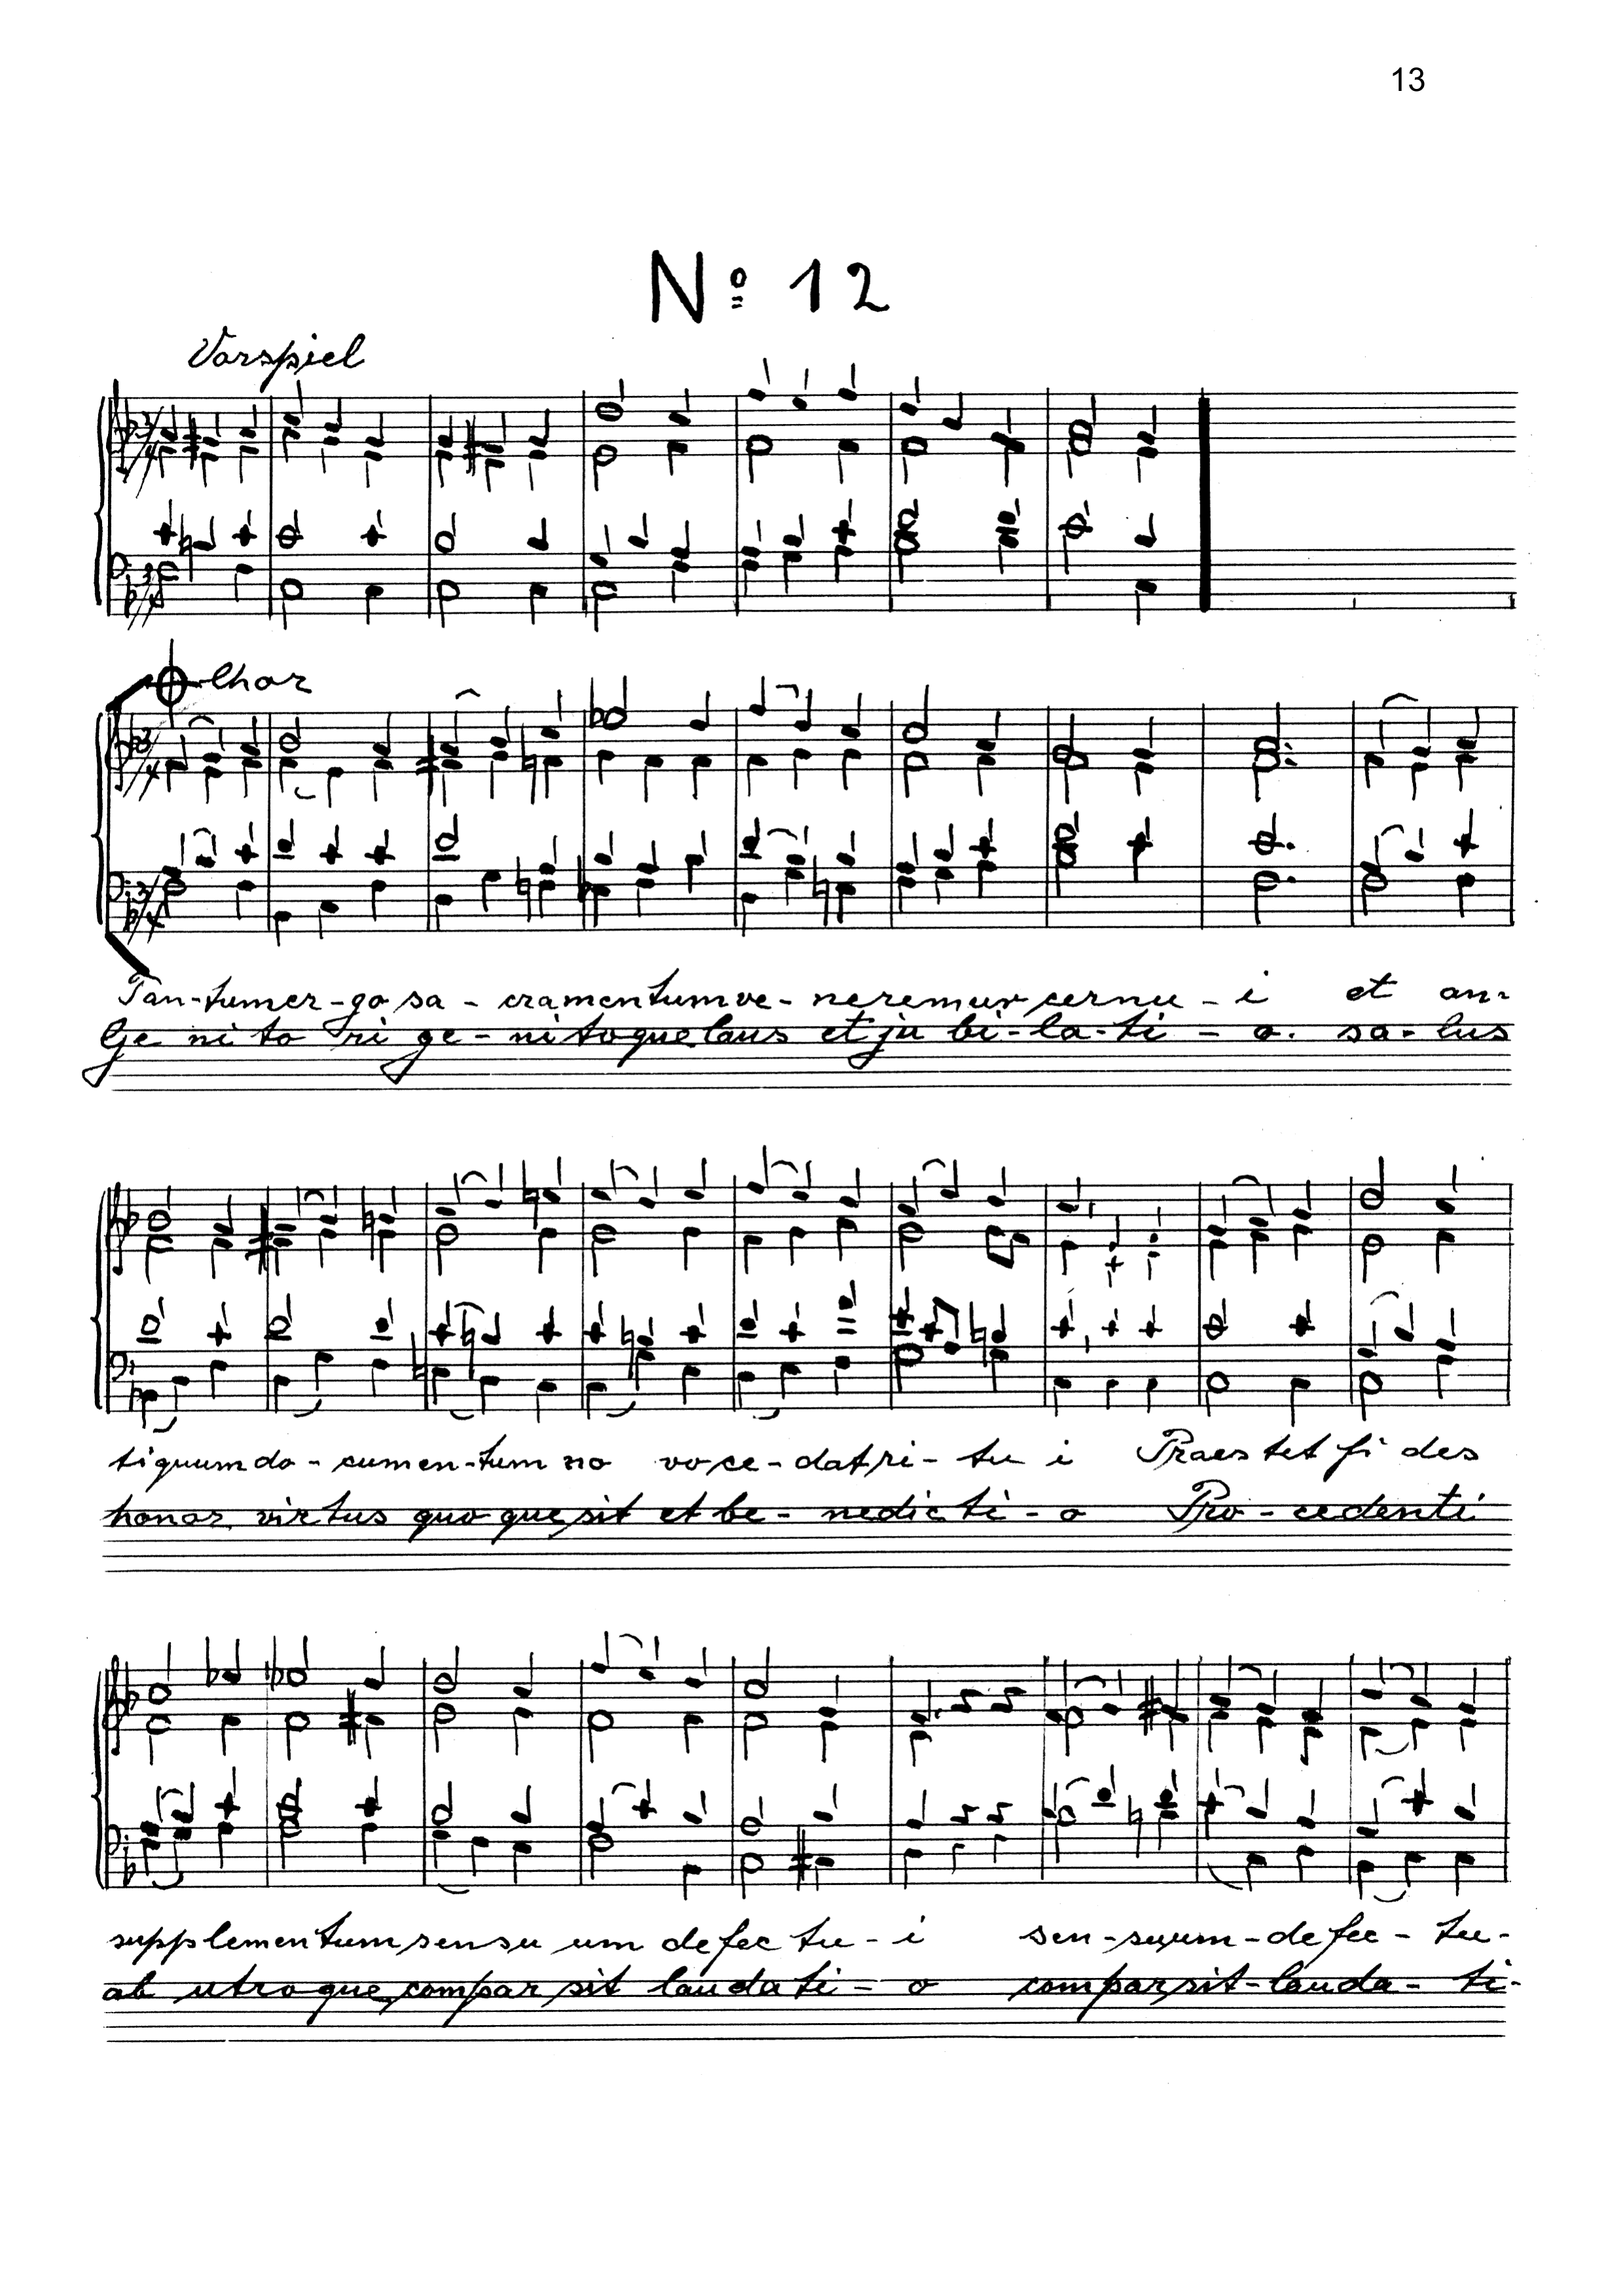 13
Nº 12
Vorspiel
Chor
Tan-tumer-go sa-cramentumve-neremur cernu-i et an-
Ge ni to ri ge-nitoquelaus et ju bi-la-ti-o. sa-lus
tiquumdo-cumen-tum no vo ce-datri-tu i Praes tet fi des
honor virtus quo que sit et be-nedic ti-o Pro-cedenti
supplementumsensu um defec tu-i sen-suum-defec-tu-
ab utroque compar sit laudati-o comparsit-lauda-ti-